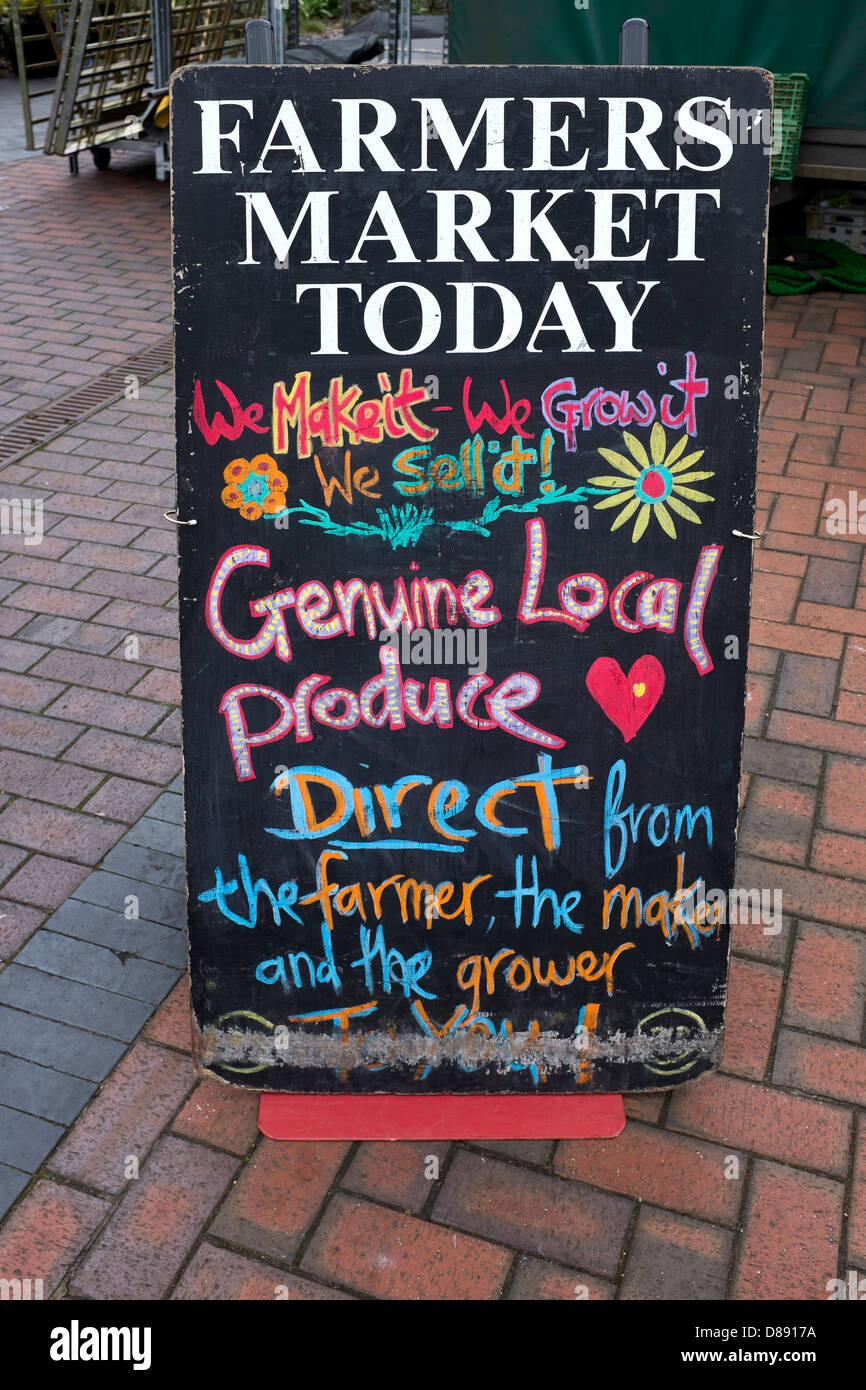 FARMERS
MARKET
TODAY
We Make it - We Grow it
We Sell it!
Genuine Local
produce
Direct from
the farmer, the maker
and the grower
To You!
alamy
Image ID: D8917A
www.alamy.com